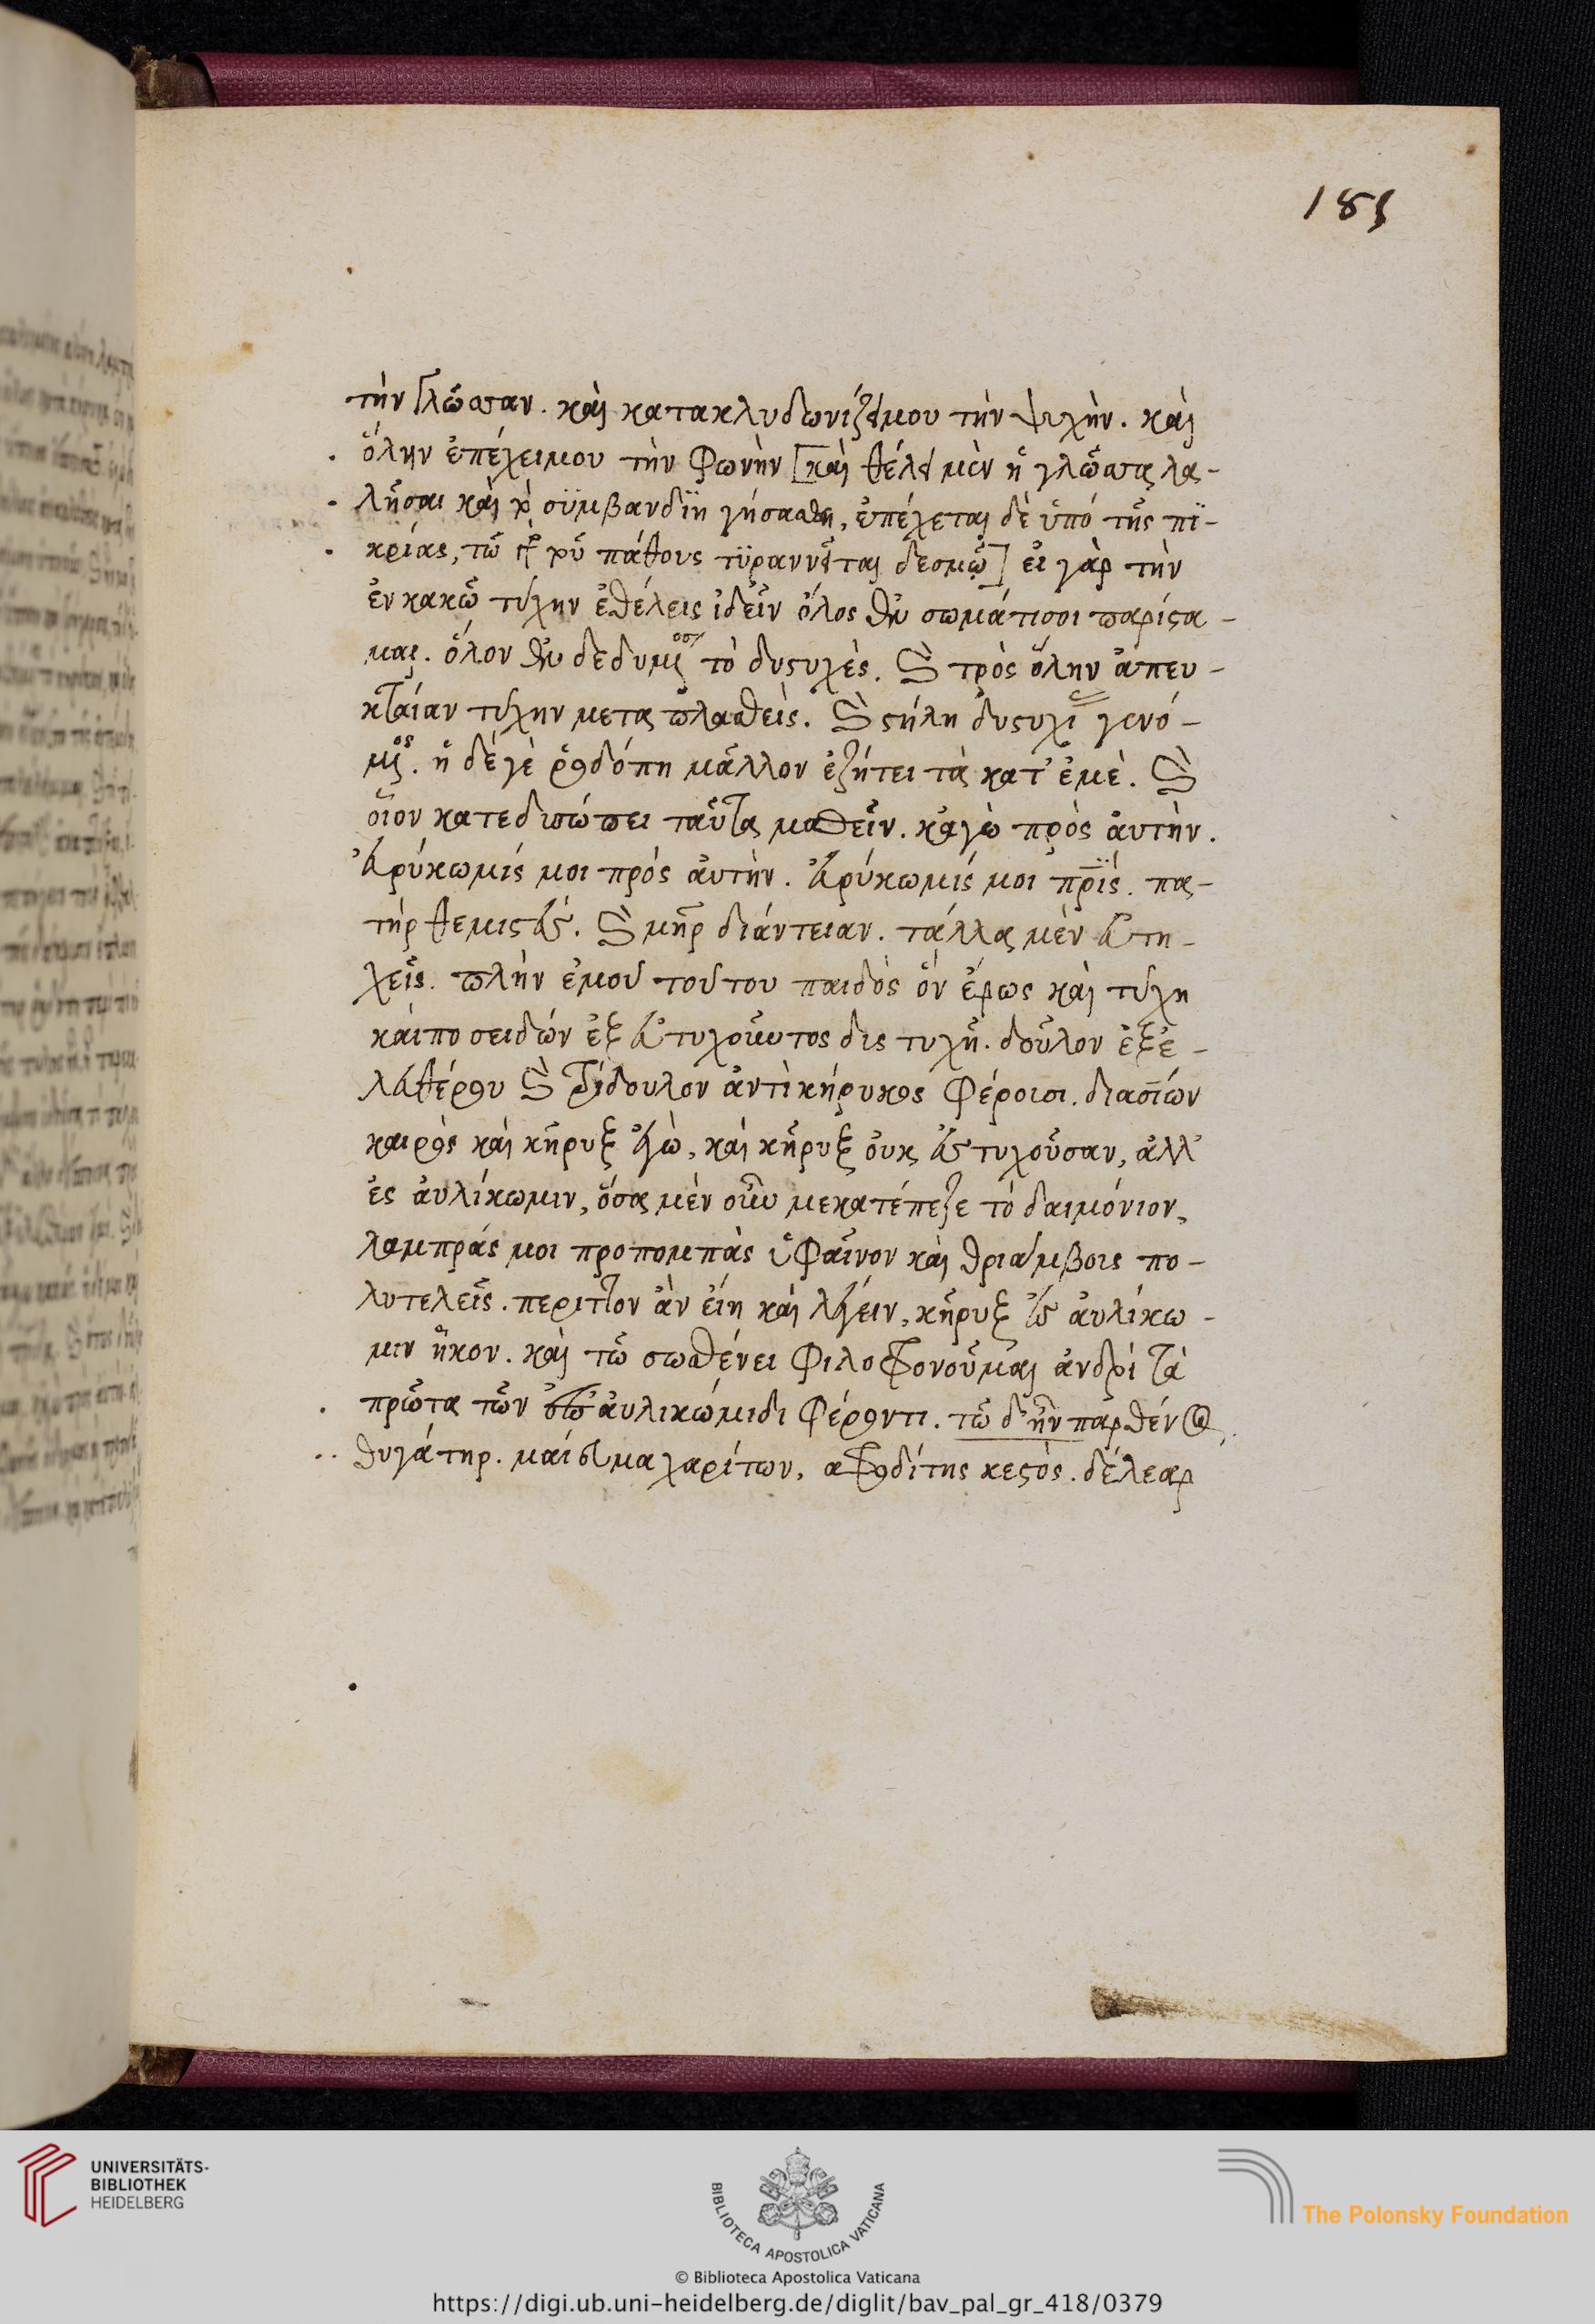 185
τὴν γλῶσσαν. καὶ κατακλυδωνίζει μου τὴν ψυχὴν. καὶ
ὅλην ἐπέχει μου τὴν φωνὴν [καὶ θέλει μὲν ἡ γλῶσσα λα-
λῆσαι καὶ τὸ σϋμβαν δϊηγήσασθαι, ἐπέχεται δὲ ὑπό τῆς πϊ-
κρίας, τῶ τοῦ πάθους τϋραννεῖται δεσμῷ] εἰ γὰρ τὴν
ἐν κακῶ τύχην ἐθέλεις ἰδεῖν ὅλος ἐν σωμάτι σοι παρίστα-
μαι. ὅλον ἐνδεδυμένος τὸ δυστυχὲς. καὶ πρὸς ὅλην ἀπευ-
κταίαν τύχην μεταπλασθεὶς. καὶ στήλη δυστυχὶ γενό-
μενος. ἡ δέ γὲ ῥοδόπη μᾶλλον ἐζήτει τὰ κατ' ἐμὲ. καὶ
οἷον κατεδυσώπει ταῦτα μαθεῖν. κἀγὼ πρὸς ἀυτὴν.
ἐυρύκωμίς μοι πρὸς ἀυτὴν. ἐυρύκωμίς μοι πρϊς. πα-
τὴρ θεμιστεύς. καὶ μηρ διάντειαν. τάλλα μὲν εὐτη-
χεῖς. πλὴν ἐμοῦ τούτου παιδὸς ὃν ἔρως καὶ τύχη
κάι ποσειδών ἐξ εὐτυχοῦντος δυςτυχῆ. δοῦλον ἐξ ἐ-
λευθέρου καὶ δουλον ἀντὶ κήρυκος φέροισι. διασίων
καιρὸς καὶ κῆρυξ ἐγὼ, καὶ κῆρυξ ὀυκ εὐτυχοῦσαν, ἀλλ'
ἐς ἀυλίκωμιν, ὅσα μὲν οὖν με κατέπεξε τὸ δαιμόνιον,
λαμπράς μοι προπομπὰς ὑφαῖνον καὶ θριάμβοις πο-
λυτελεῖς. περιττὸν ἂν εἴη καὶ λέγειν, κῆρυξ ἐς ἀυλίκω-
μιν ἧκον. καὶ τῶ σωσθένει φιλοφρονοῦμαι ἀνδρὶ τὰ
πρῶτα τῶν ἐν ἀυλικώμιδι φέροντι. τῶ δ' ἦν παρθένος
θυγάτηρ. μαίευμα χαρίτων, αφροδίτης κεστὸς. δέλεαρ
UNIVERSITÄTS-
BIBLIOTHEK
HEIDELBERG
BIBLIOTECA APOSTOLICA VATICANA
The Polonsky Foundation
© Biblioteca Apostolica Vaticana
https://digi.ub.uni-heidelberg.de/diglit/bav_pal_gr_418/0379